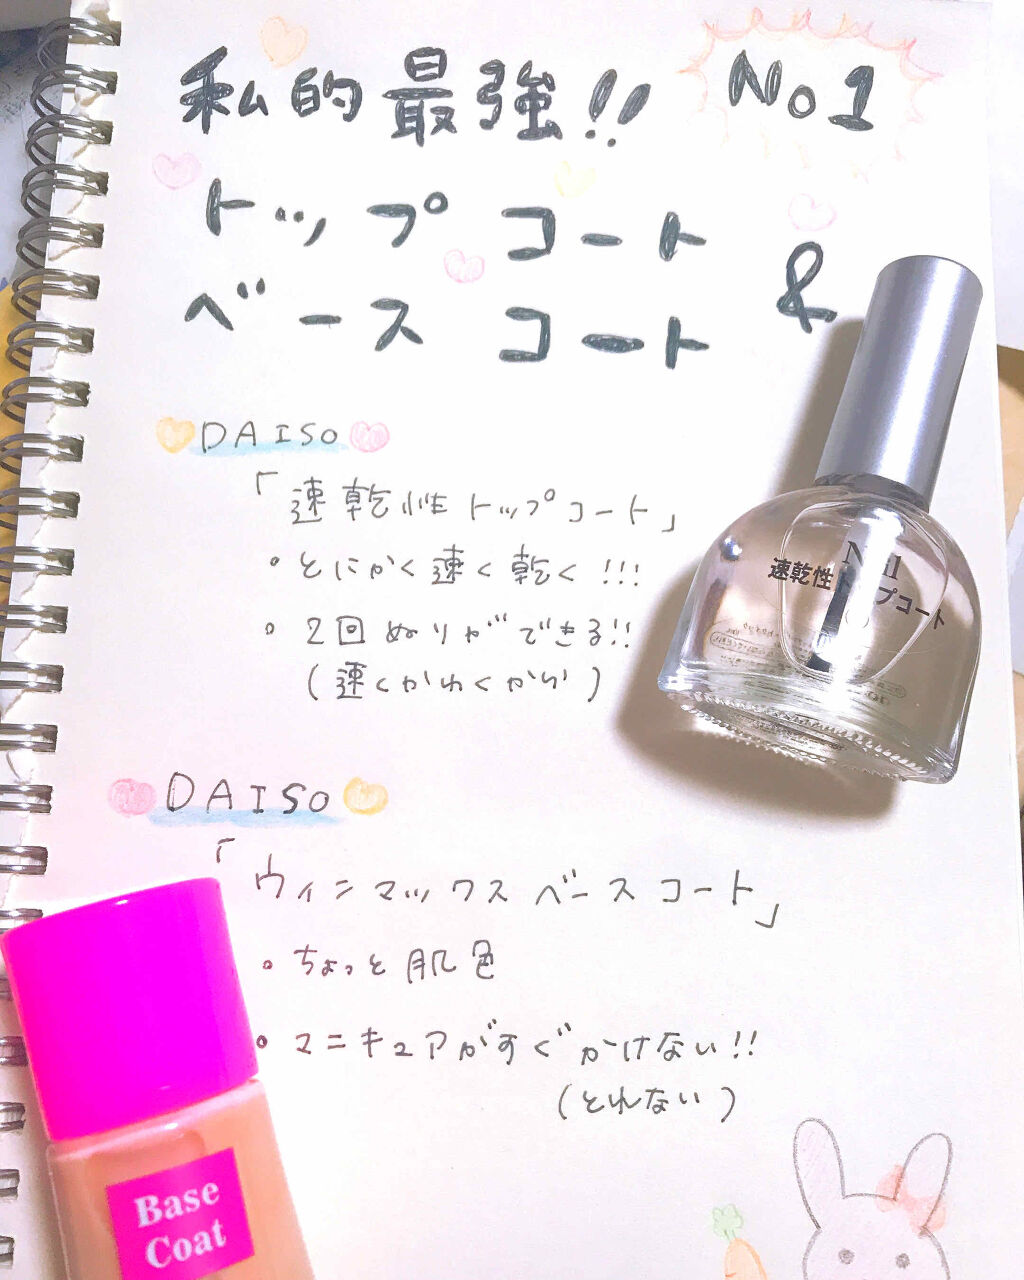 私的最強!! No1
トップコート &
ベースコート
DAISO
「速乾性トップコート」
・とにかく速く乾く!!!
・2回ぬりができる!!
(速くかわくかい)
Nail
速乾性トップコート
DAISO
「ウィンマックスベースコート」
・ちょっと肌色
・マニキュアがすぐかけない!!
(とれない)
Base
Coat